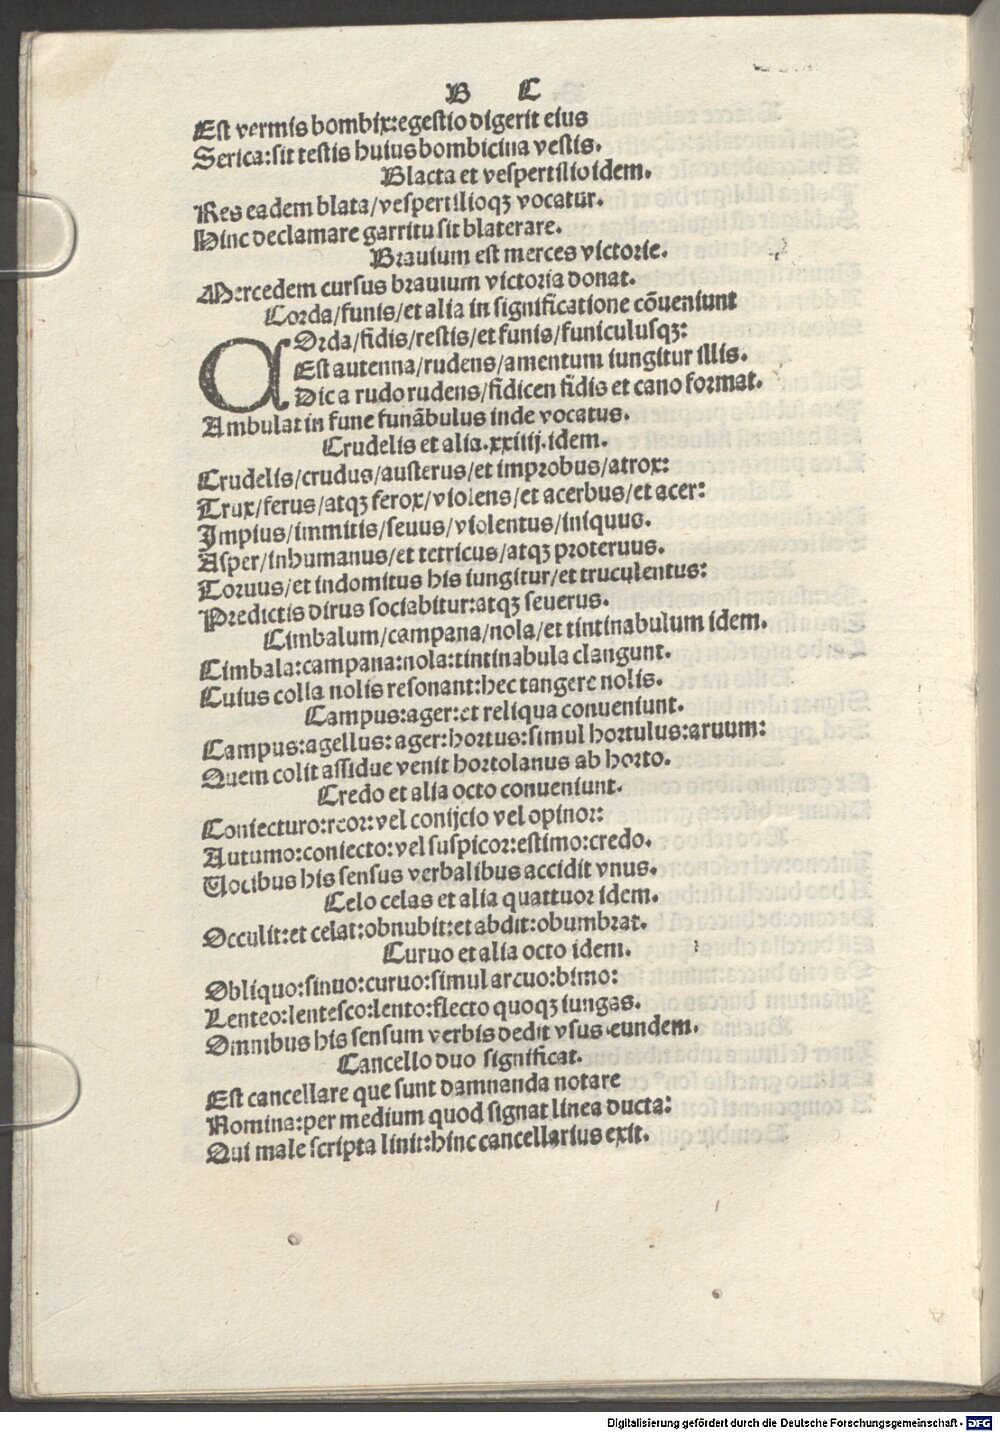 B C
Est vermis bombix:egestio digerit eius
Serica:sit testis huius bombicina vestis.
Blacta et vespertilio idem.
Res eadem blata/vespertilioqꝫ vocatur.
Hinc declamare garritu sit blaterare.
Brauium est merces victorie.
Mercedem cursus brauium victoria donat.
Corda/funis/et alia in significatione cõueniunt
COrda/fidis/restis/et funis/funiculusqꝫ:
Est autenna/rudens/amentum iungitur illis.
Dic a rudo rudens/fidicen fidis et cano format.
Ambulat in fune funãbulus inde vocatus.
Crudelis et alia.xxiiij.idem.
Crudelis/crudus/austerus/et improbus/atrox:
Trux/ferus/atqꝫ ferox/violens/et acerbus/et acer:
Impius/immitis/seuus/violentus/iniquus.
Asper/inhumanus/et tetricus/atqꝫ proteruus.
Toruus/et indomitus his iungitur/et truculentus:
Predictis dirus sociabitur:atqꝫ seuerus.
Cimbalum/campana/nola/et tintinabulum idem.
Cimbala:campana:nola:tintinabula clangunt.
Cuius colla nolis resonant:hec tangere nolis.
Campus:ager:et reliqua conueniunt.
Campus:agellus:ager:hortus:simul hortulus:aruum:
Quem colit assidue venit hortolanus ab horto.
Credo et alia octo conueniunt.
Coniecturo:reor:vel conijcio vel opinor:
Autumo:coniecto:vel suspicor:estimo:credo.
Vocibus his sensus verbalibus accidit vnus.
Celo celas et alia quattuor idem.
Occulit:et celat:obnubit:et abdit:obumbrat.
Curuo et alia octo idem.
Obliquo:sinuo:curuo:simul arcuo:bimo:
Lenteo:lentesco:lento:flecto quoqꝫ iungas.
Omnibus his sensum verbis dedit vsus eundem.
Cancello duo significat.
Est cancellare que sunt damnanda notare
Nomina:per medium quod signat linea ducta:
Qui male scripta linit:hinc cancellarius exit.
Digitalisierung gefördert durch die Deutsche Forschungsgemeinschaft - DFG